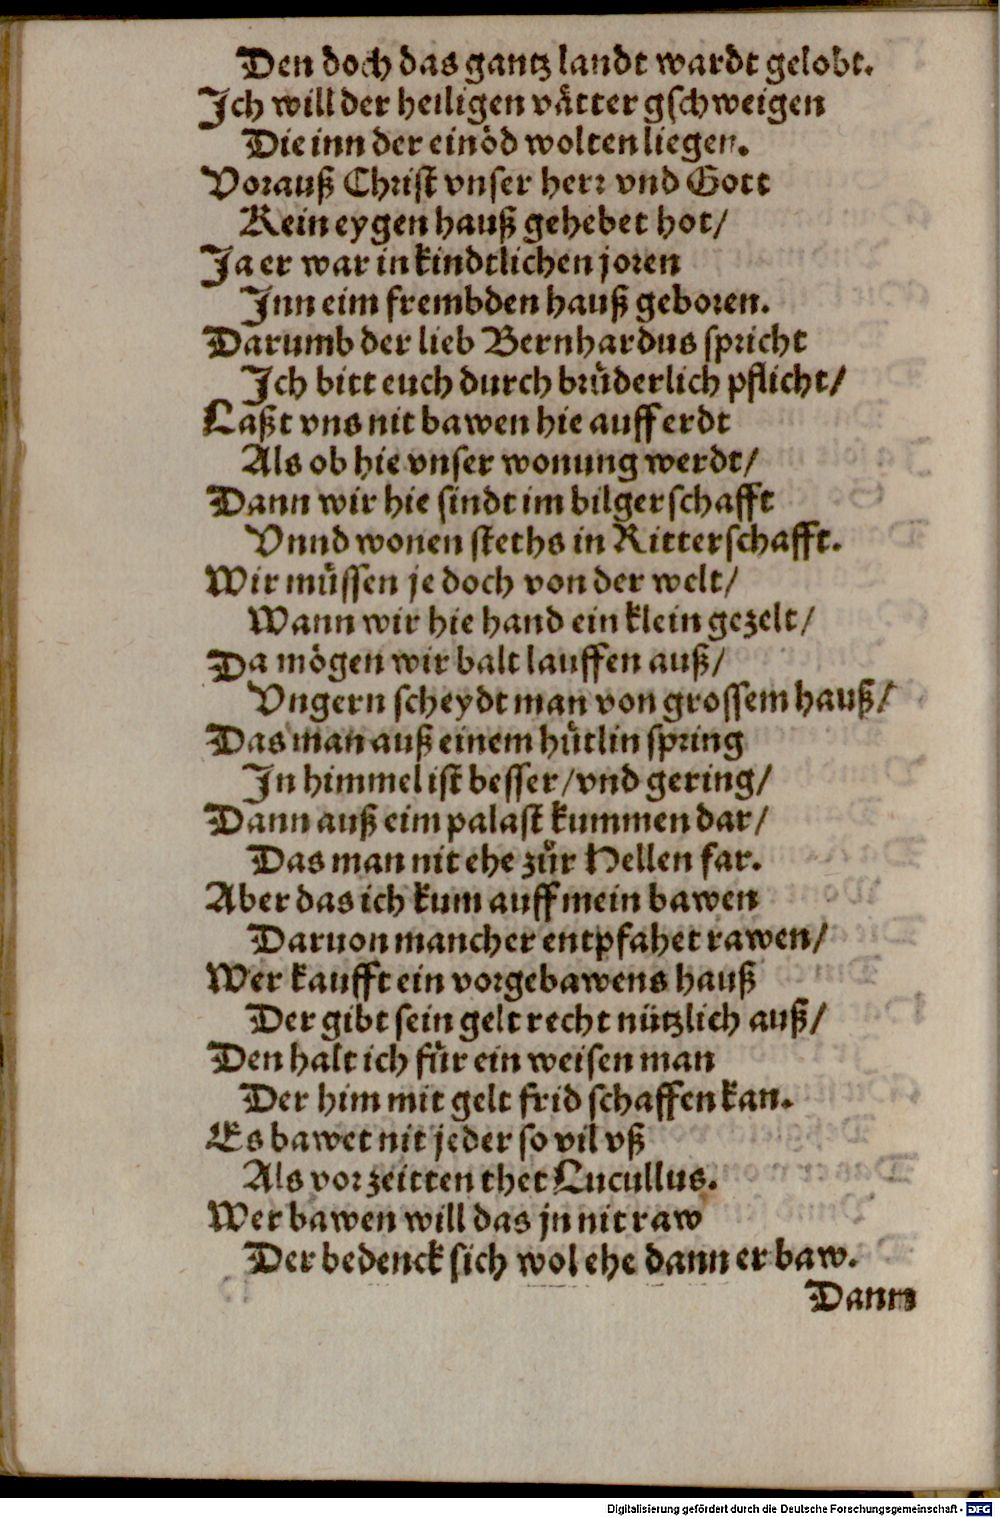 Den doch das gantz landt wardt gelobt.
Ich will der heiligen våtter gschweigen
Die inn der einöd wolten liegen.
Vorauß Christ vnser herr vnd Gott
Kein eygen hauß gehebet hot/
Ja er war in kindtlichen joren
Inn eim frembden hauß geboren.
Darumb der lieb Bernhardus spricht
Ich bitt euch durch brůderlich pflicht/
Laßt vns nit bawen hie auff erdt
Als ob hie vnser wonung werdt/
Dann wir hie sindt im bilgerschafft
Vnnd wonen steths in Ritterschafft.
Wir müssen je doch von der welt/
Wann wir hie hand ein klein gezelt/
Da mögen wir balt lauffen auß/
Vngern scheydt man von grossem hauß/
Das man auß einem hůtlin spring
In himmel ist besser/vnd gering/
Dann auß eim palast kummen dar/
Das man nit ehe zůr Hellen far.
Aber das ich kum auff mein bawen
Daruon mancher entpfahet rawen/
Wer kaufft ein vorgebawens hauß
Der gibt sein gelt recht nützlich auß/
Den halt ich für ein weisen man
Der him mit gelt frid schaffen kan.
Es bawet nit jeder so vil vß
Als vorzeitten thet Lucullus.
Wer bawen will das jn nit raw
Der bedenck sich wol ehe dann er baw.
Dann
Digitalisierung gefördert durch die Deutsche Forschungsgemeinschaft - DFG